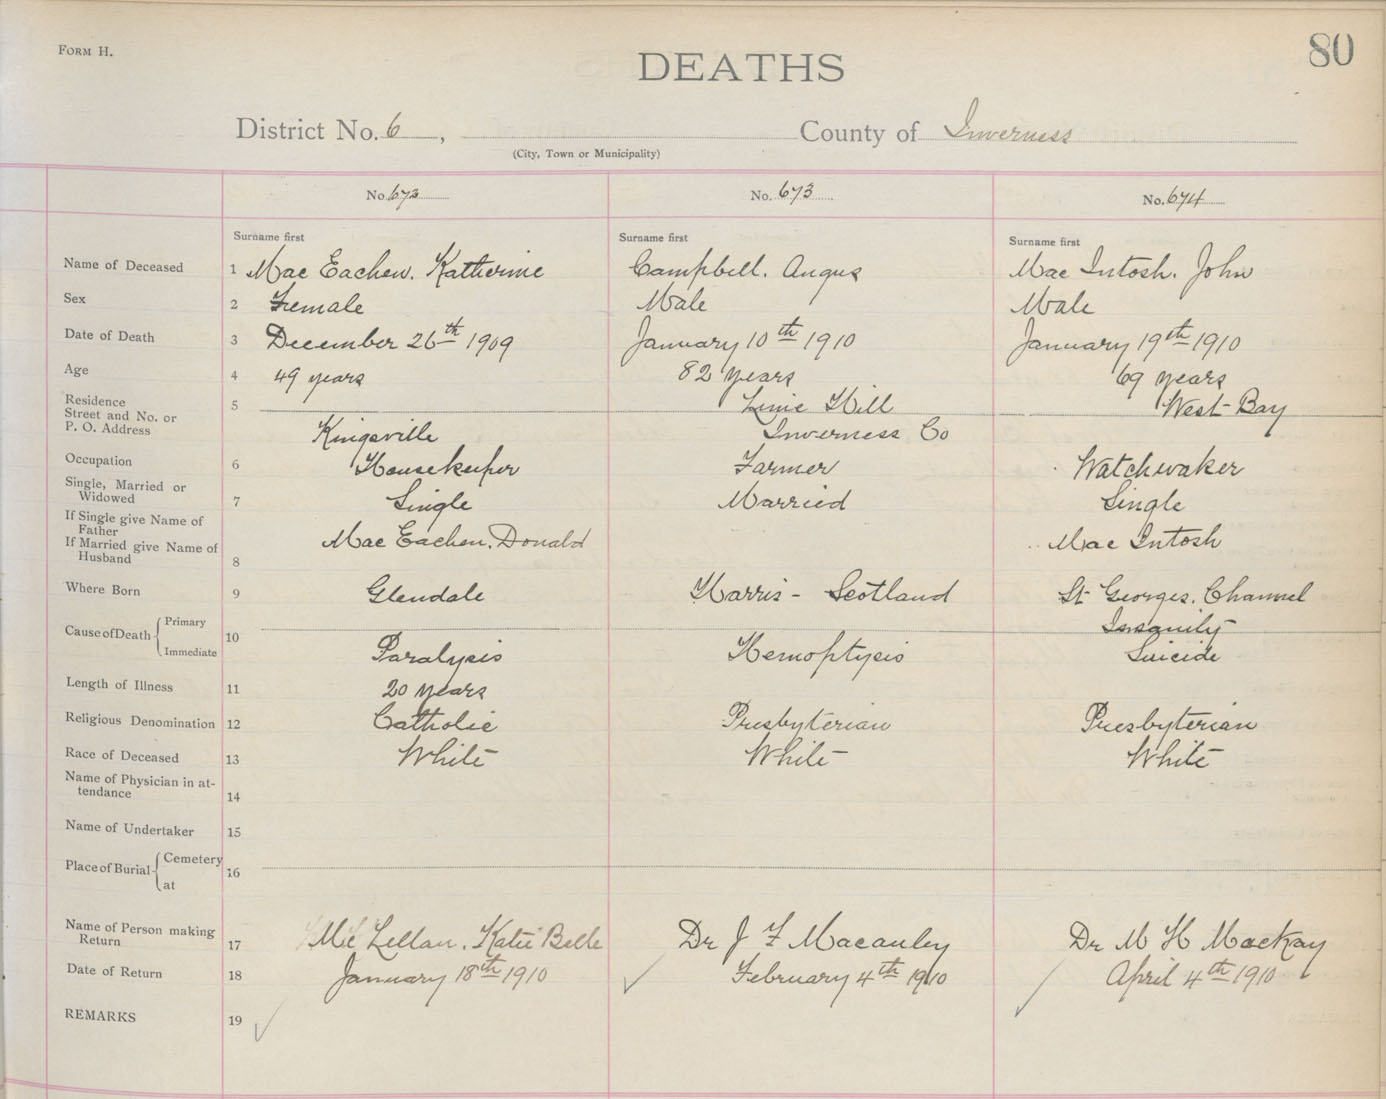 FORM H.
80
DEATHS
District No. 6, County of Inverness
(City, Town or Municipality)
No. 672 No. 673 No. 674
Surname first Surname first Surname first
Name of Deceased 1 Mac Eachen. Katherine Campbell. Angus Mac Intosh. John
Sex 2 Female Male Male
Date of Death 3 December 26th 1909 January 10th 1910 January 19th 1910
Age 4 49 years 82 years 69 years
Residence
Street and No. or
P. O. Address 5 Kingsville Lime Hill Inverness Co West Bay
Occupation 6 Housekeeper Farmer Watchmaker
Single, Married or
Widowed 7 Single Married Single
If Single give Name of
Father
If Married give Name of
Husband 8 Mac Eachen. Donald Mac Intosh
Where Born 9 Glendale Harris - Scotland St Georges. Channel
Cause of Death Primary 10 Insanity
Immediate Paralysis Hemoptysis Suicide
Length of Illness 11 20 years
Religious Denomination 12 Catholic Presbyterian Presbyterian
Race of Deceased 13 White White White
Name of Physician in at-
tendance 14
Name of Undertaker 15
Place of Burial Cemetery 16
at
Name of Person making
Return 17 Mc Lellan. Katie Belle Dr J F Macauley Dr M H MacKay
Date of Return 18 January 18th 1910 February 4th 1910 April 4th 1910
REMARKS 19